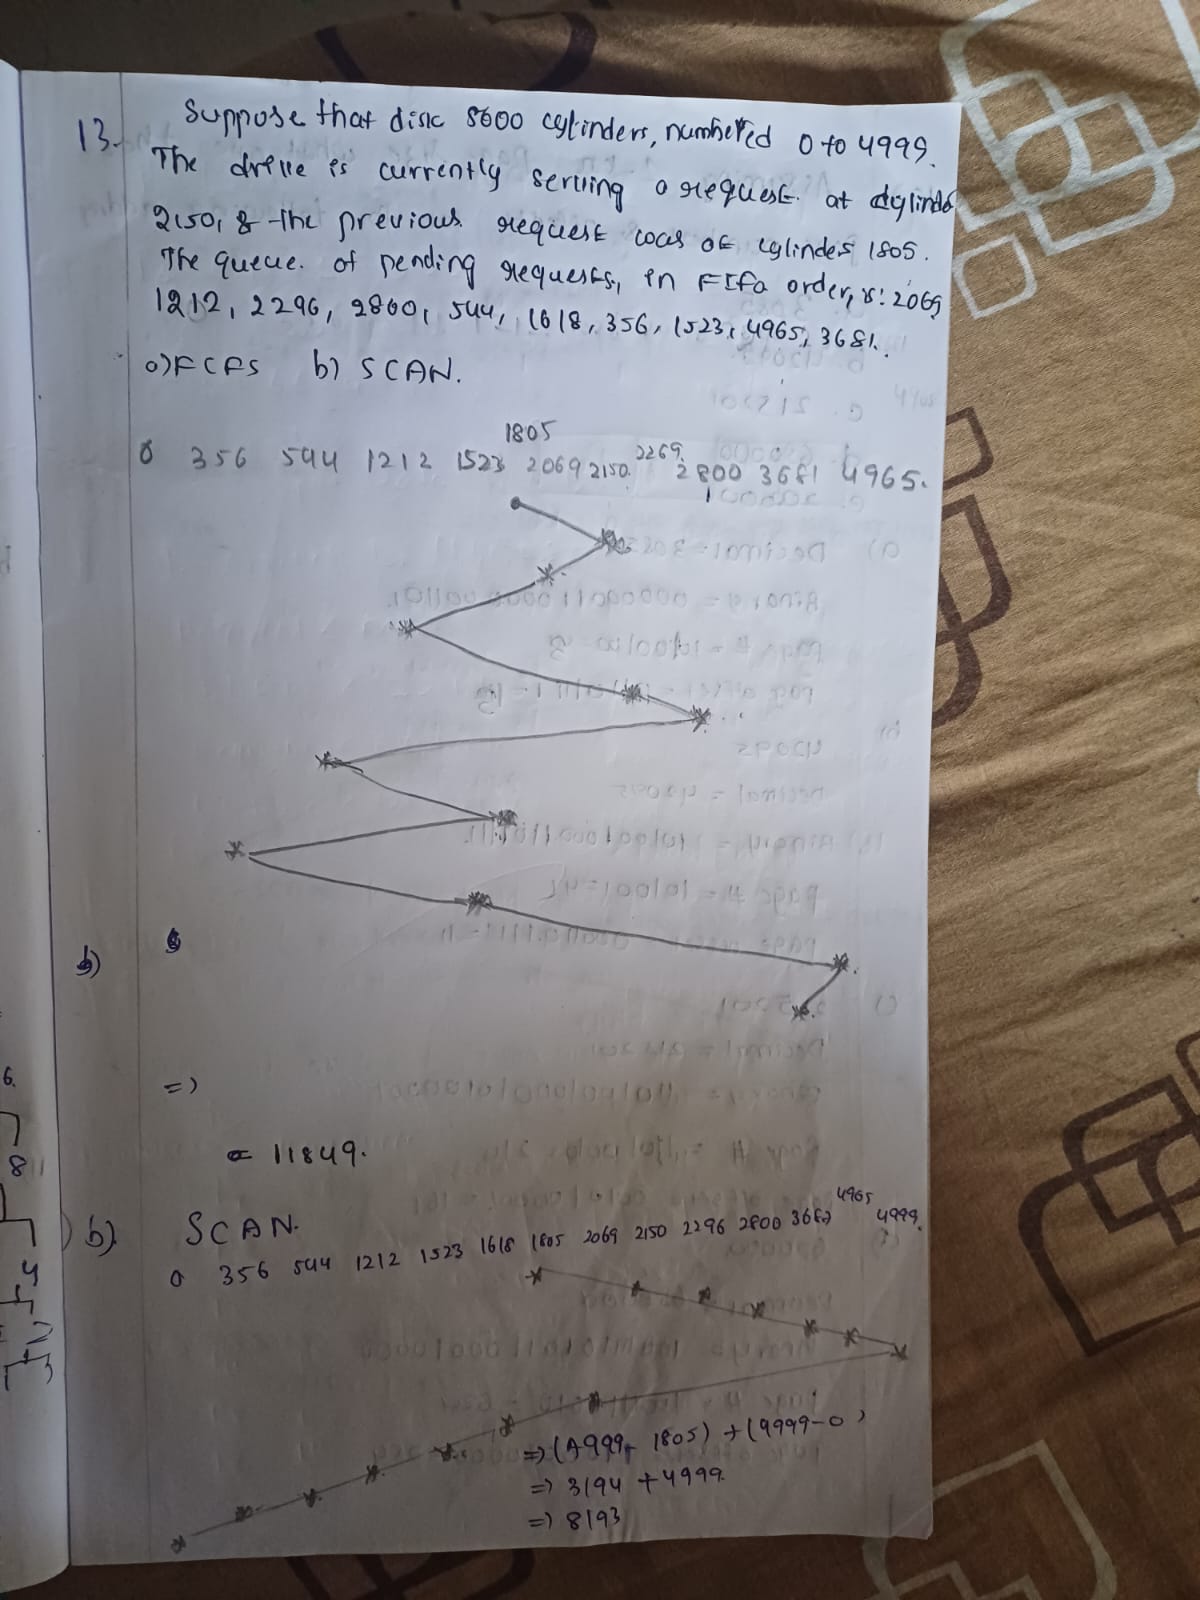 13. Suppose that disk 5000 cylinders, numbered 0 to 4999.
The drive is currently serving a request at cylinde
2150, & the previous request was at cylinder 1805.
The queue of pending requests, in FIFo order, is: 2069
1212, 2296, 2800, 544, 1618, 356, 1523, 4965, 3681.
a) FCFS b) SCAN.
1805
0 356 544 1212 1523 2069 2150 2269 2800 3681 4965.
b)
=>
= 11849.
b). SCAN.
0 356 544 1212 1523 1618 1805 2069 2150 2296 2800 3681 4965 4999.
=> (4999 - 1805) + (4999-0)
=> 3194 + 4999.
=> 8193
6.
8